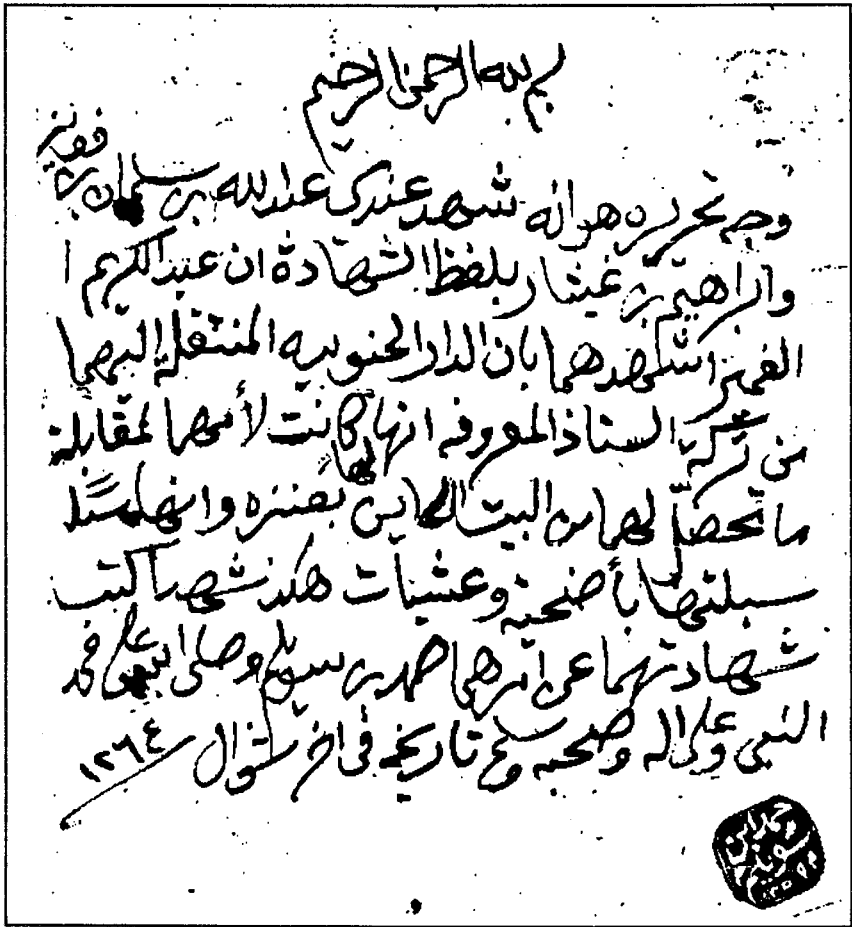 بسم الله الرحمن الرحيم
وجه تحريره هو انه شهد عندي عبد الله بن سلمان بن فوزان
وابراهيم بن غيثار بلفظ الشهادة ان عبد الكريم ا
الغميز اشهدهما بان الدار الجنوبيه المنتقلة اليهما
من تركة الستاذ المعروفه انها كانت لأمهما لمقابلة
ما تحصل لهما من البيت الها بعنزه وانها سبل
سبلتها بأضحية وعشيات هكذ شهدا كتب
شهادتهما عن امرهما حمد بن سويلم وصلى الله على محمد
النبي وعلى اله وصحبه وسلم تاريخه في اخر شوال ١٢٦٤
حمد ابن سويلم